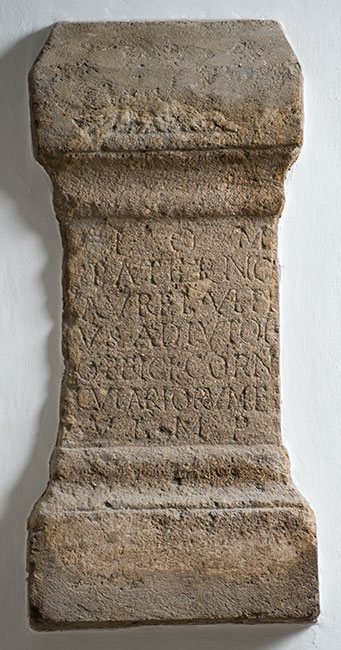 I O M
PATERNO
AVREL VLPI
VS ADIVTOR
OFFICI CORN
CVLARIORVM E
M P